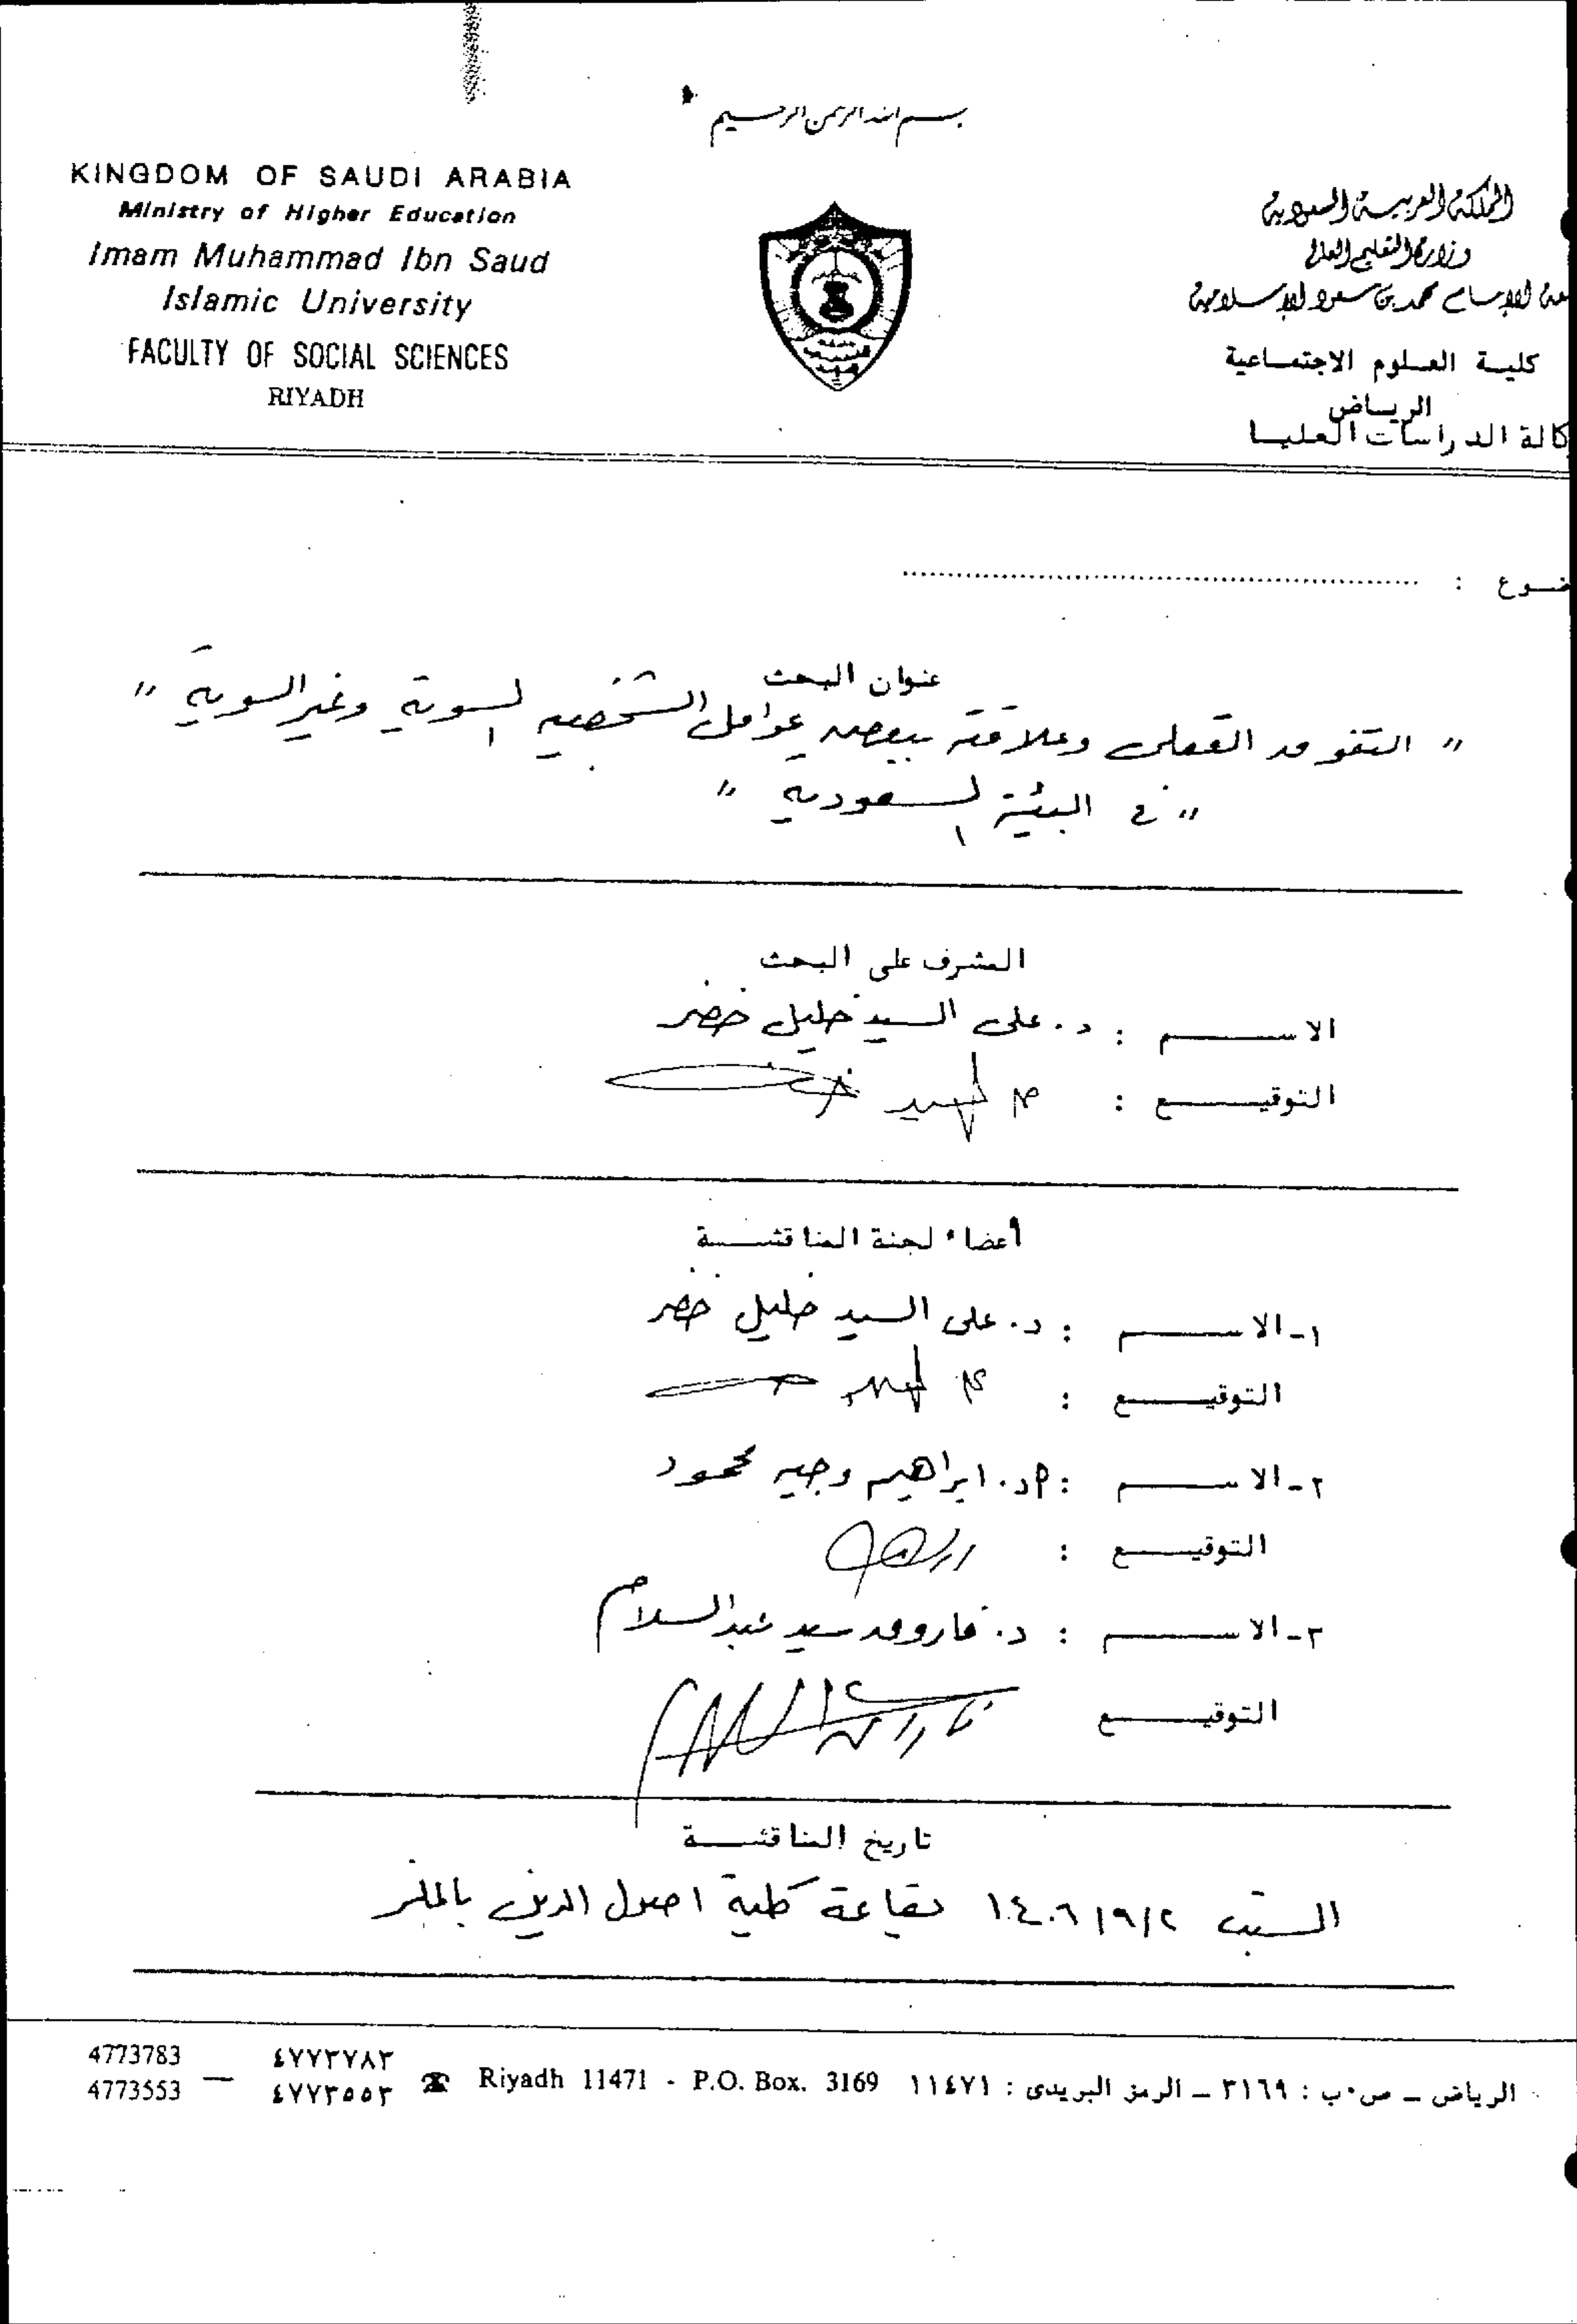 بسم الله الرحمن الرحيم
KINGDOM OF SAUDI ARABIA
Ministry of Higher Education
Imam Muhammad Ibn Saud
Islamic University
FACULTY OF SOCIAL SCIENCES
RIYADH
المملكة العربية السعودية
وزارة التعليم العالي
الإمام محمد بن سعود الإسلامية
كلية العلوم الاجتماعية
الرياض
كالة الدراسات العليا
ضوع :
عنوان البحث
" التفوق العقلى وعلاقته ببعض عوامل الشخصية السوية وغير السوية "
" في البيئة السعودية "
المشرف على البحث
الاسم : د. على السيد خليل خضر
التوقيع :
أعضاء لجنة المناقشة
١- الاسم : د. على السيد خليل خضر
التوقيع :
٢- الاسم : أ.د. ابراهيم وجيه محمود
التوقيع :
٣- الاسم : د. فاروق سيد عبدالسلام
التوقيع
تاريخ المناقشة
السبت ١٤٠٦/٩/٢ بقاعة كلية اصول الدين بالملز
4773783 ٤٧٧٣٧٨٣
4773553 — ٤٧٧٣٥٥٣ ☎ Riyadh 11471 - P.O. Box. 3169 الرياض – ص.ب : ٣١٦٩ – الرمز البريدى : ١١٤٧١